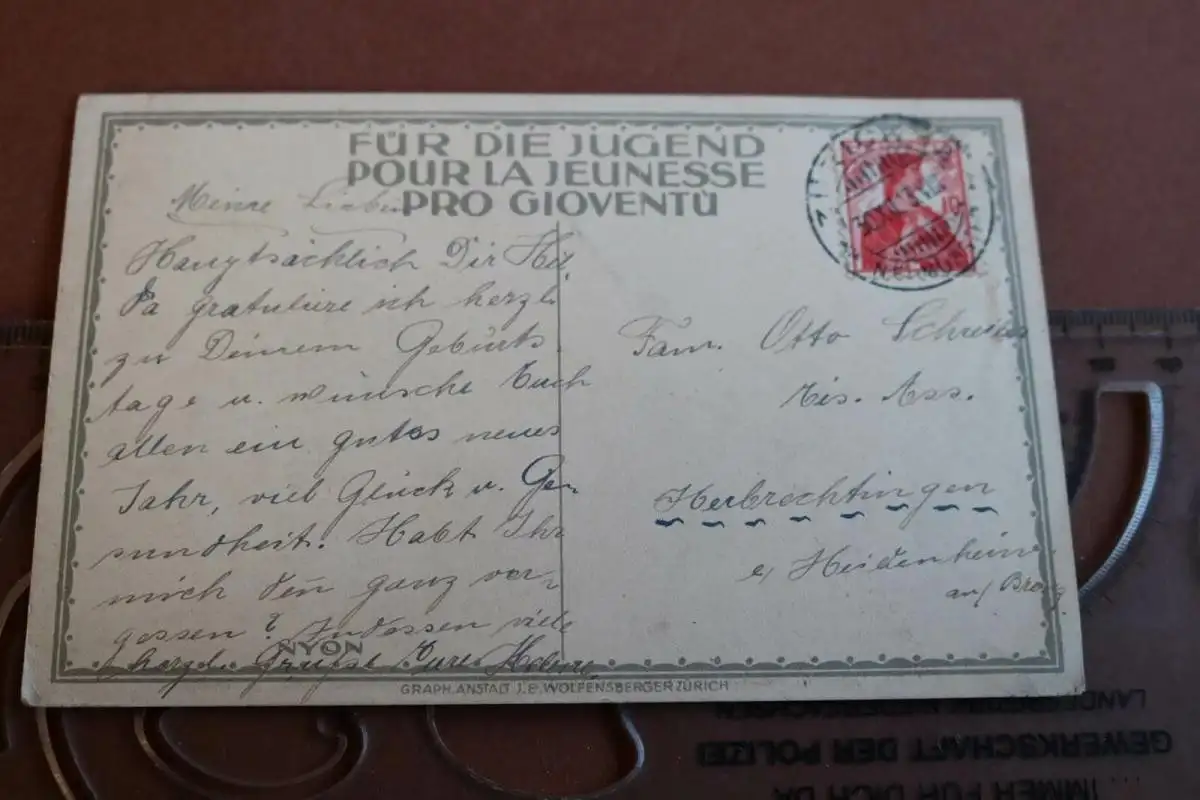 FÜR DIE JUGEND
POUR LA JEUNESSE
PRO GIOVENTÙ
Meine Lieben
Hauptsächlich Dir
gratuliere ich herzl.
zu Deinem Geburts
tage u. wünsche Euch
allen ein gutes neues
Jahr, viel Glück u. Ge-
sundheit. Habt Ihr
mich den ganz ver-
gessen? Indessen viele
herzl. Grüsse Eure
NYON
10
Fam. Otto
Herbrechtingen
Heidenheim
a/
GRAPH. ANSTALT J.E. WOLFENSBERGER ZÜRICH
GEWERKSCHAFT DER POLIZEI
... IMMER FÜR DICH DA